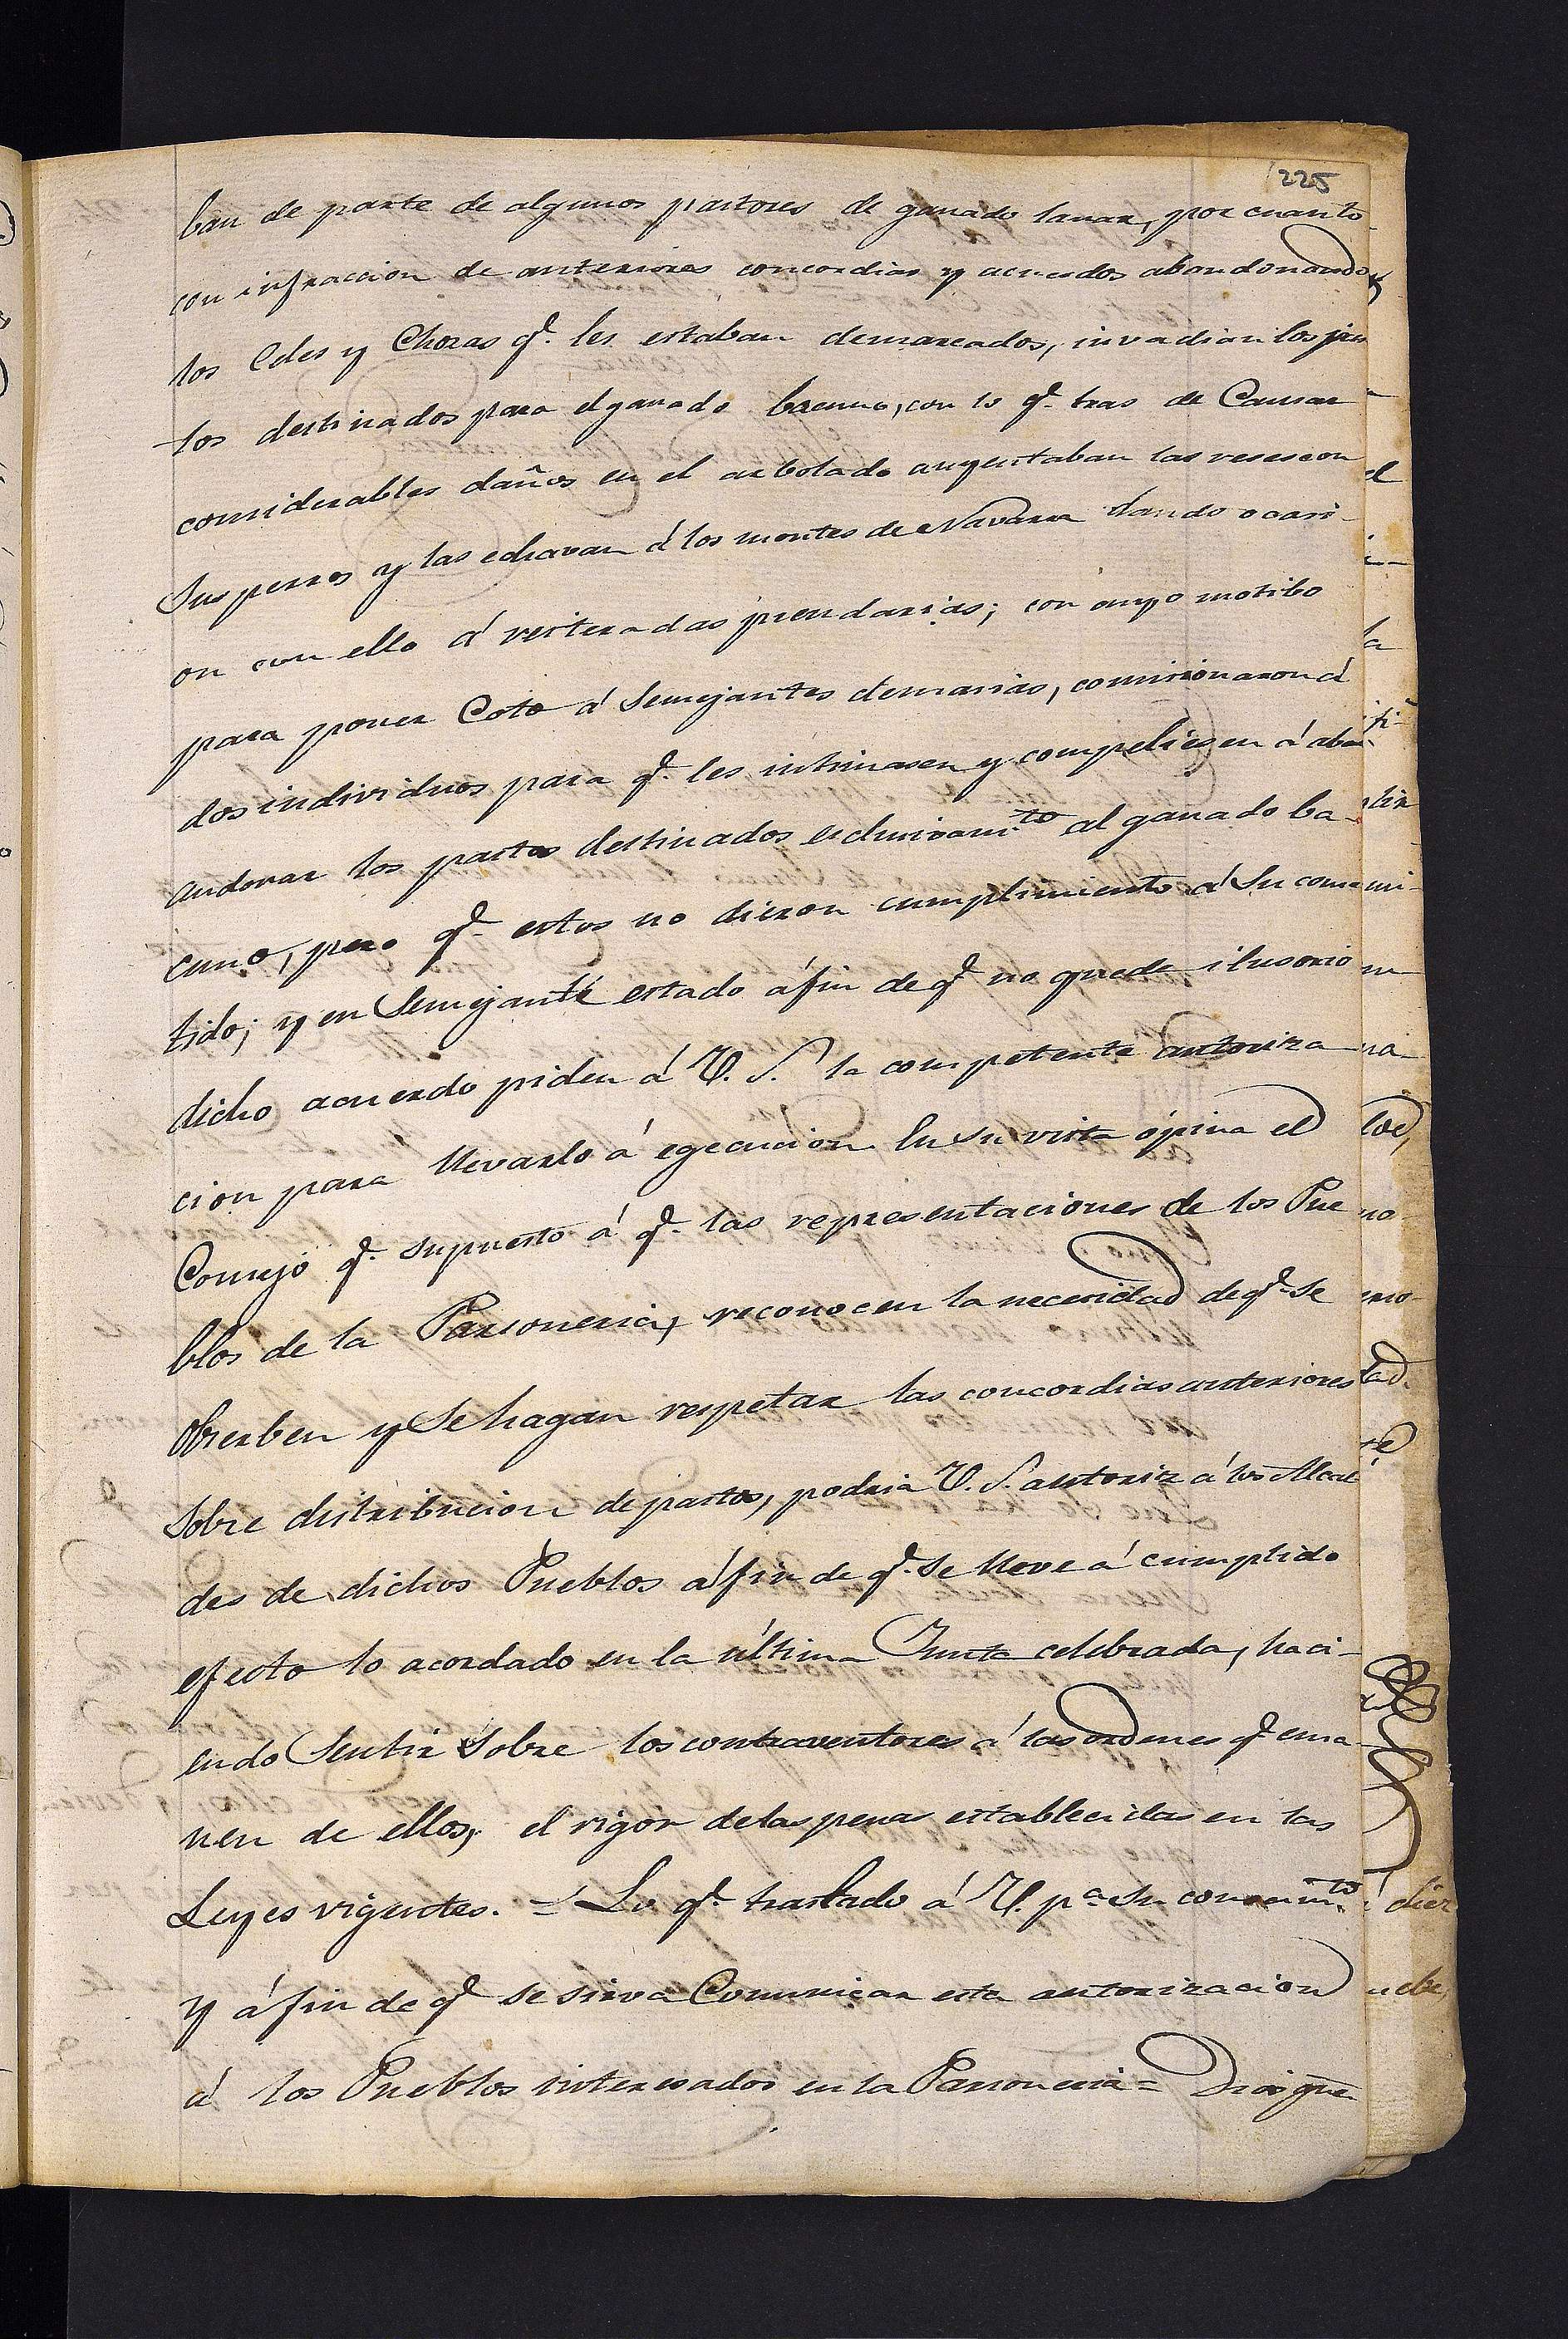 225
ban de parte de algunos pastores de ganado lanar, por cuanto
con infraccion de anteriores concordias y acuerdos abandonando
los Celes y Chozas q.e les estaban demarcados, invadian los pu
tos destinados para el ganado bacuno, con lo q.e tras de Causar
considerables daños en el arbolado augentaban las reses con
Sus perros y las echavan á los montes de Navarra dando ocasi-
on con ello á reiteradas prendarias; con cuyo motibo
para poner Coto á Semejantes demasias, comisionaron á
dos individuos para q.e les intimasen y compeliesen á aba-
andonar los pastos destinados esclusivam.to al ganado ba-
cuno, pero q.e estos no dieron cumplimiento á Su come
tido; y en Semejante estado á fin de q.e no quede ilusorio
dicho acuerdo piden á V. S. la competente autoriza
cion para llevarlo á egecucion. En su vista opina el
Consejo q.e supuesto á q.e las representaciones de los Pue
blos de la Parzoneria, reconocen la necesidad de q.e Se
obserben y Se hagan respetar las concordias anteriores
Sobre distribucion de pastos, podria V. S. autoriz á los Alcal
des de dichos Pueblos á fin de q.e Se lleve á cumplido
efecto lo acordado en la última Junta celebrada, haci-
endo Sentir Sobre los contraventores á las ordenes q.e ema-
nen de ellos, el rigor de las penas establecidas en las
Leyes vigentes. = Lo q.e traslado á V. p.a Su conocim.to
y á fin de q.e se sirva Comunicar esta autorizacion
á los Pueblos interesados en la Parzoneria = Dios gue